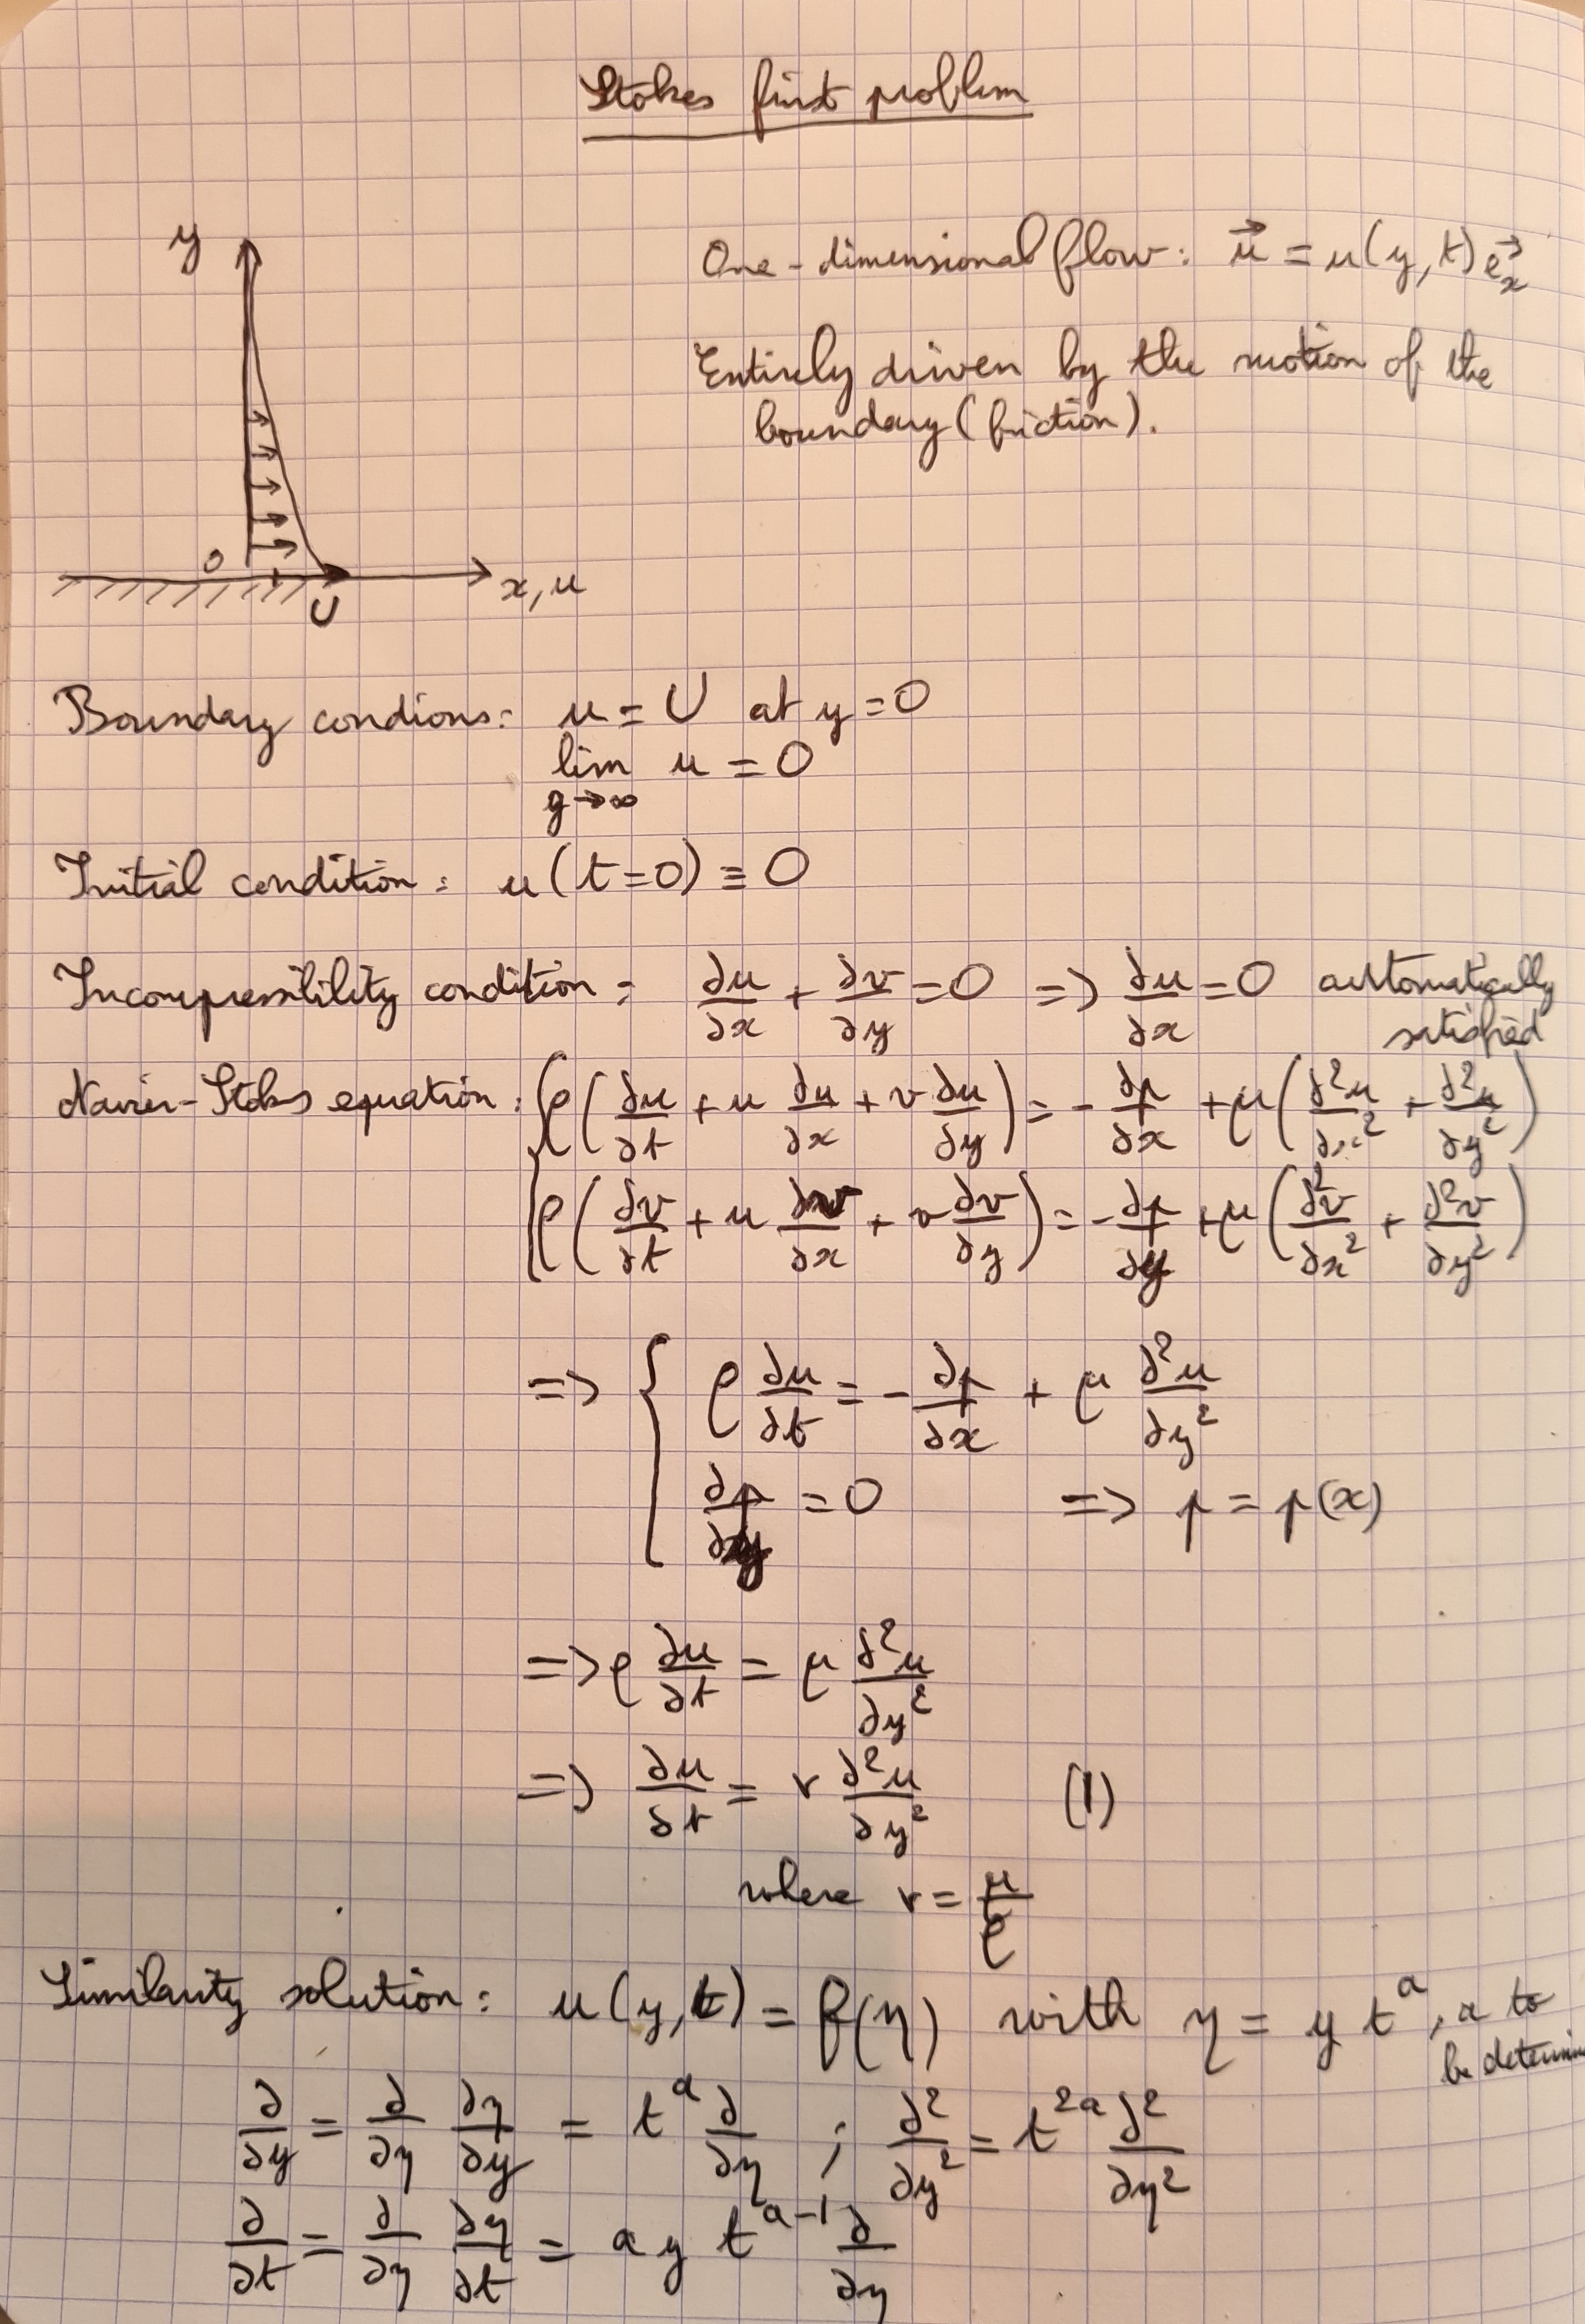 Stokes first problem
y
One-dimensional flow: u⃗ = u(y,t) e⃗ₓ
Entirely driven by the motion of the
boundary (friction).
0
x, u
U
Boundary condions: u = U at y = 0
lim u = 0
y→∞
Initial condition: u(t=0) ≡ 0
Incompressibility condition: ∂u/∂x + ∂v/∂y = 0 => ∂u/∂x = 0 automatically
satisfied
Navier-Stokes equation: { ρ(∂u/∂t + u ∂u/∂x + v ∂u/∂y) = -∂p/∂x + μ(∂²u/∂x² + ∂²u/∂y²)
ρ(∂v/∂t + u ∂v/∂x + v ∂v/∂y) = -∂p/∂y + μ(∂²v/∂x² + ∂²v/∂y²)
=> { ρ ∂u/∂t = -∂p/∂x + μ ∂²u/∂y²
∂p/∂y = 0 => p = p(x)
=> ρ ∂u/∂t = μ ∂²u/∂y²
=> ∂u/∂t = ν ∂²u/∂y² (1)
where ν = μ/ρ
Similarity solution: u(y,t) = f(η) with η = y t^a, a to
∂/∂y = ∂/∂η ∂η/∂y = t^a ∂/∂η ; ∂²/∂y² = t^2a ∂²/∂η²
∂/∂t = ∂/∂η ∂η/∂t = a y t^a-1 ∂/∂η